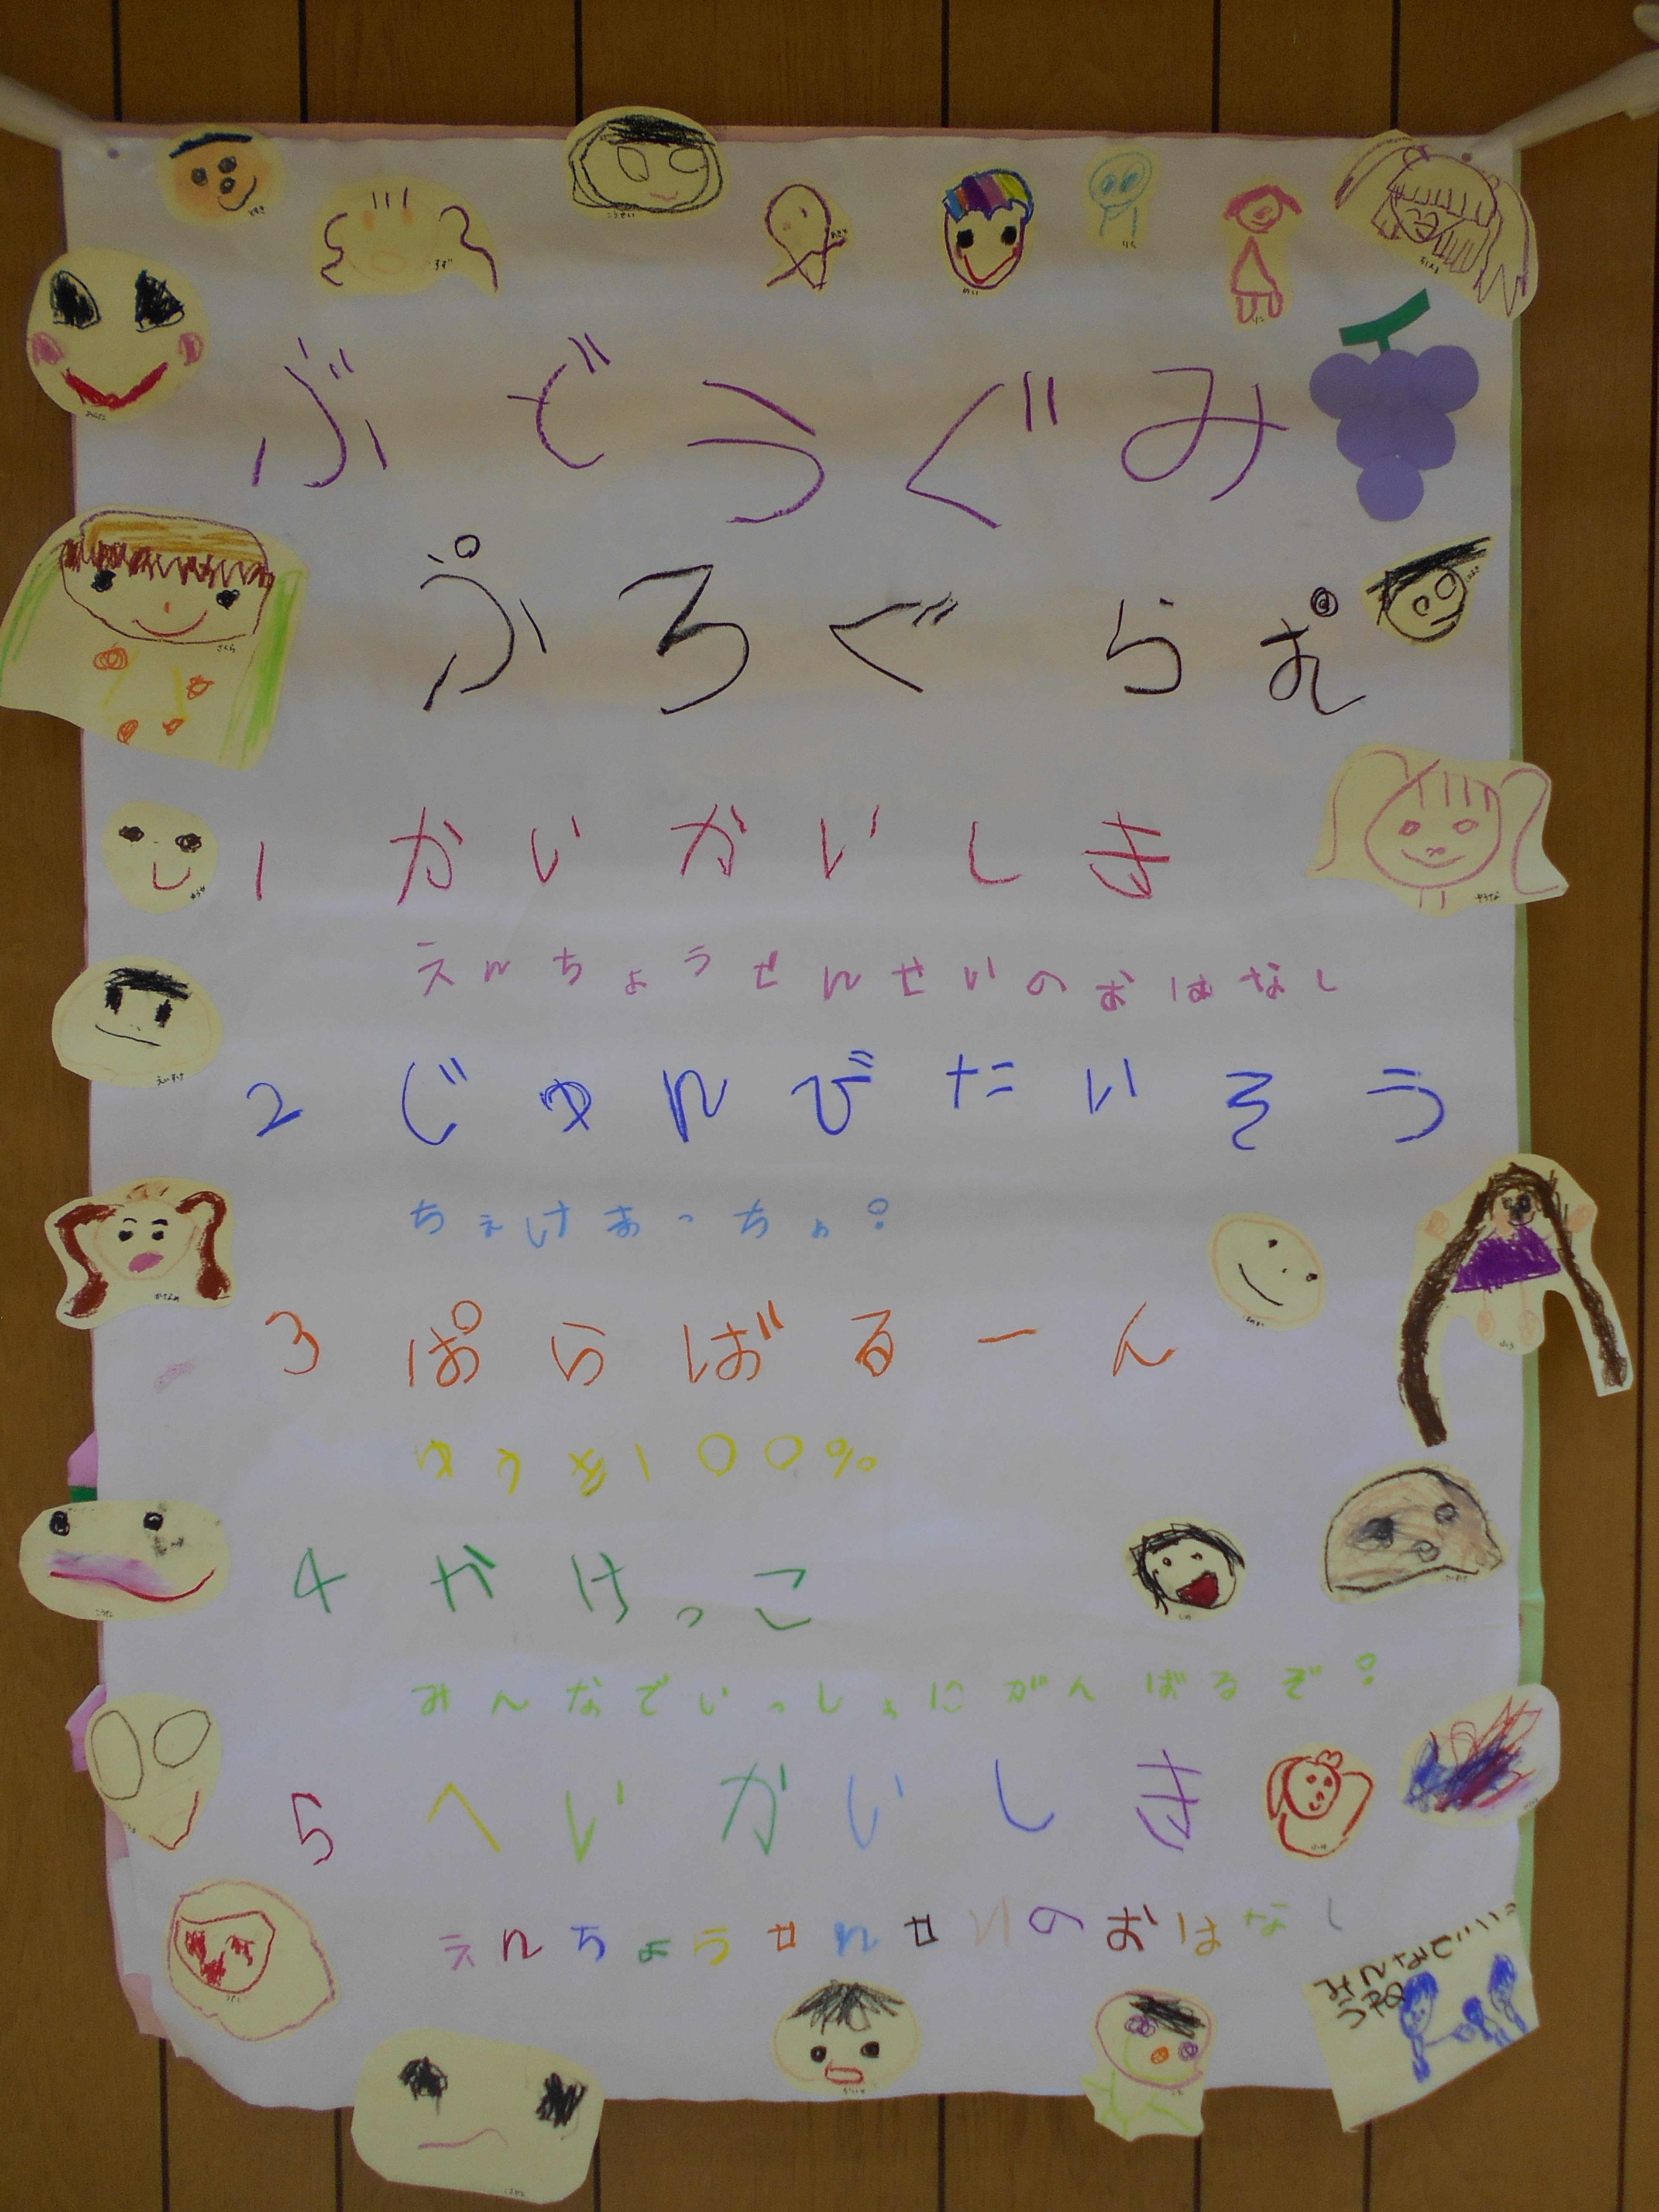 めい
りく
ぶどうぐみ
ぷろぐらむ
さくら
1 かいがいしき
えんちょうせんせいのおはなし
2 じゅんびたいそう
ちぇけまっちょ!
3 ぱらばるーん
ゆうき100%
4 かけっこ
みんなでいっしょにがんばるぞ!
5 へいがいしき
えんちょうせんせいのおはなし